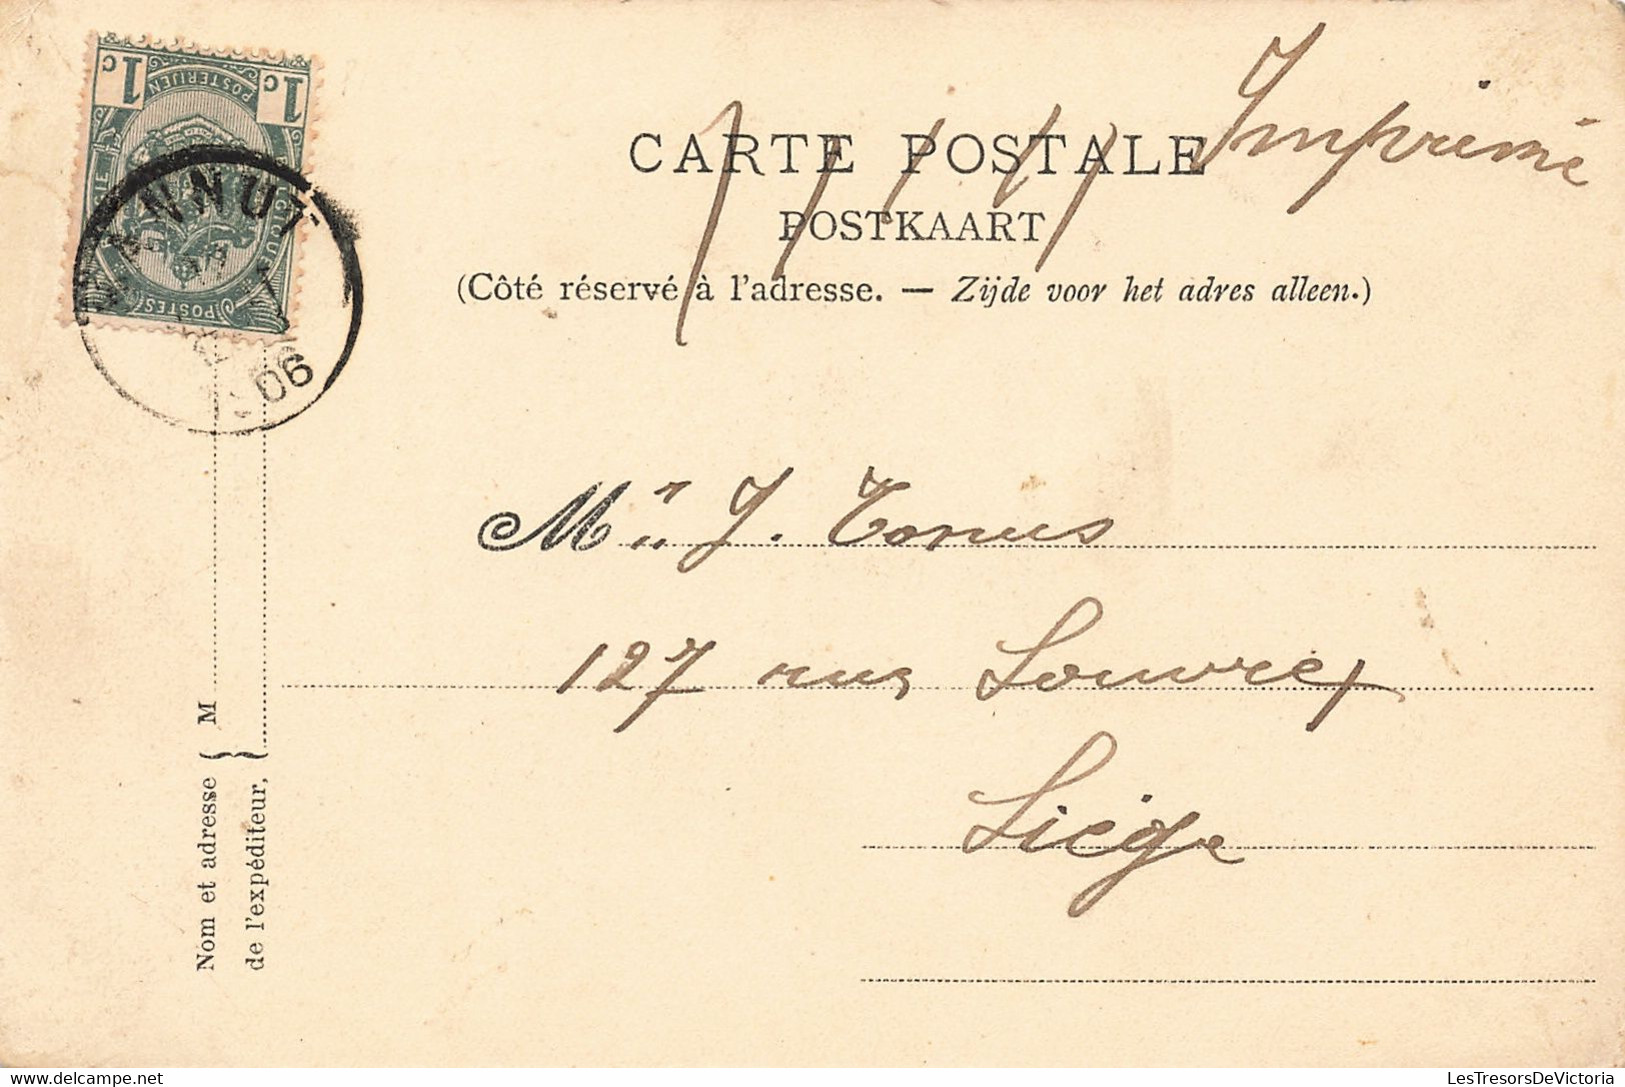 1c POSTERIJEN 1c
BELGIQUE
POSTES
HANNUT
06
Imprimé
CARTE POSTALE
POSTKAART
(Côté réservé à l'adresse. — Zijde voor het adres alleen.)
M" J. Tonus
127 rue Louvrex
Liége
Nom et adresse { M
de l'expéditeur, }
LesTresorsDeVictoria